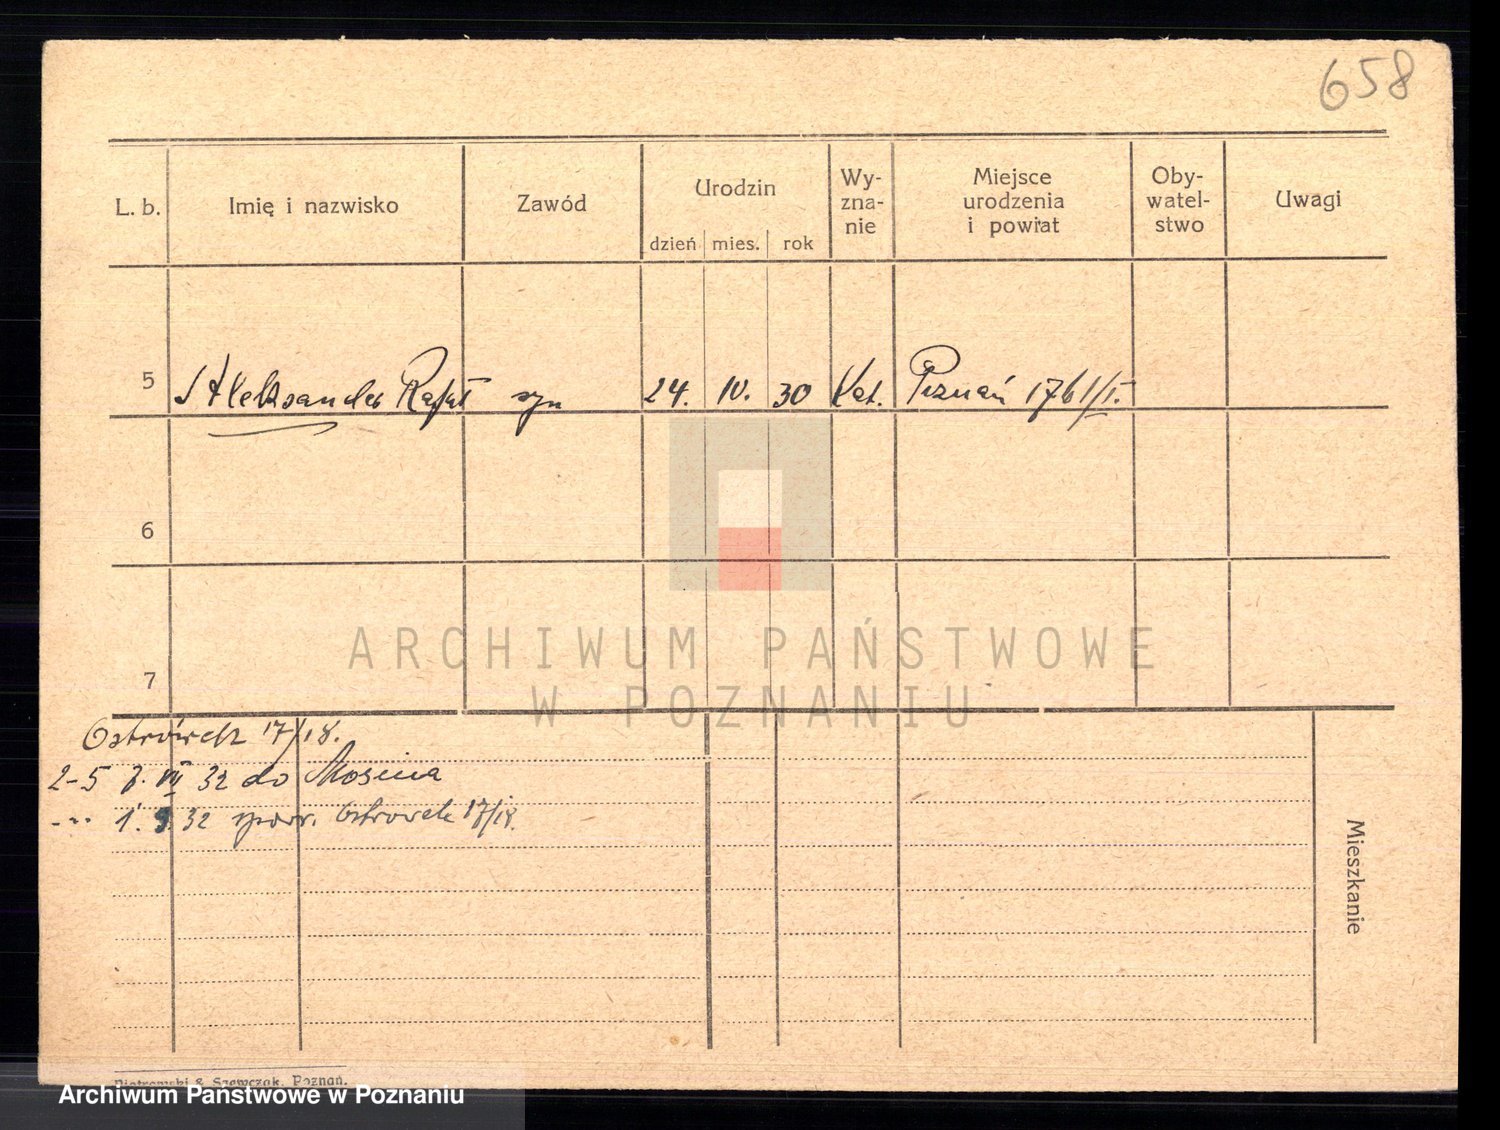 658
L. b. Imię i nazwisko Zawód Urodzin dzień mies. rok Wy-zna-nie Miejsce urodzenia i powiat Oby-watel-stwo Uwagi
5 Aleksander Rafał syn 24. IV. 30 Kat. Poznań 1761/I.
6
7
ARCHIWUM PAŃSTWOWE
W POZNANIU
Ostrówek 17/18.
2-5 7. VII 32 do Mosina
-"- 1. 9. 32 spowr. Ostrowek 17/18.
Mieszkanie
Piotrowski & Szewczak, Poznań.
Archiwum Państwowe w Poznaniu